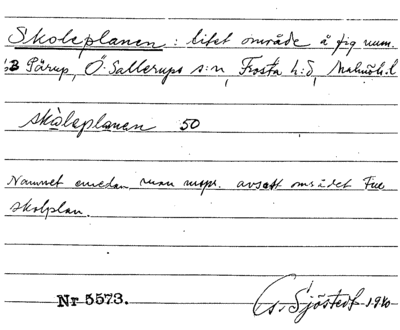 Skoleplanen: litet område å fig num.
B Pärup, Ö. Sallerups s:n, Frosta h:d, Malmöh. l
skoleplanen 50
Namnet emedan man urspr. avsatt området
skolplan.
Nr 5573. G. Sjöstedt 1940